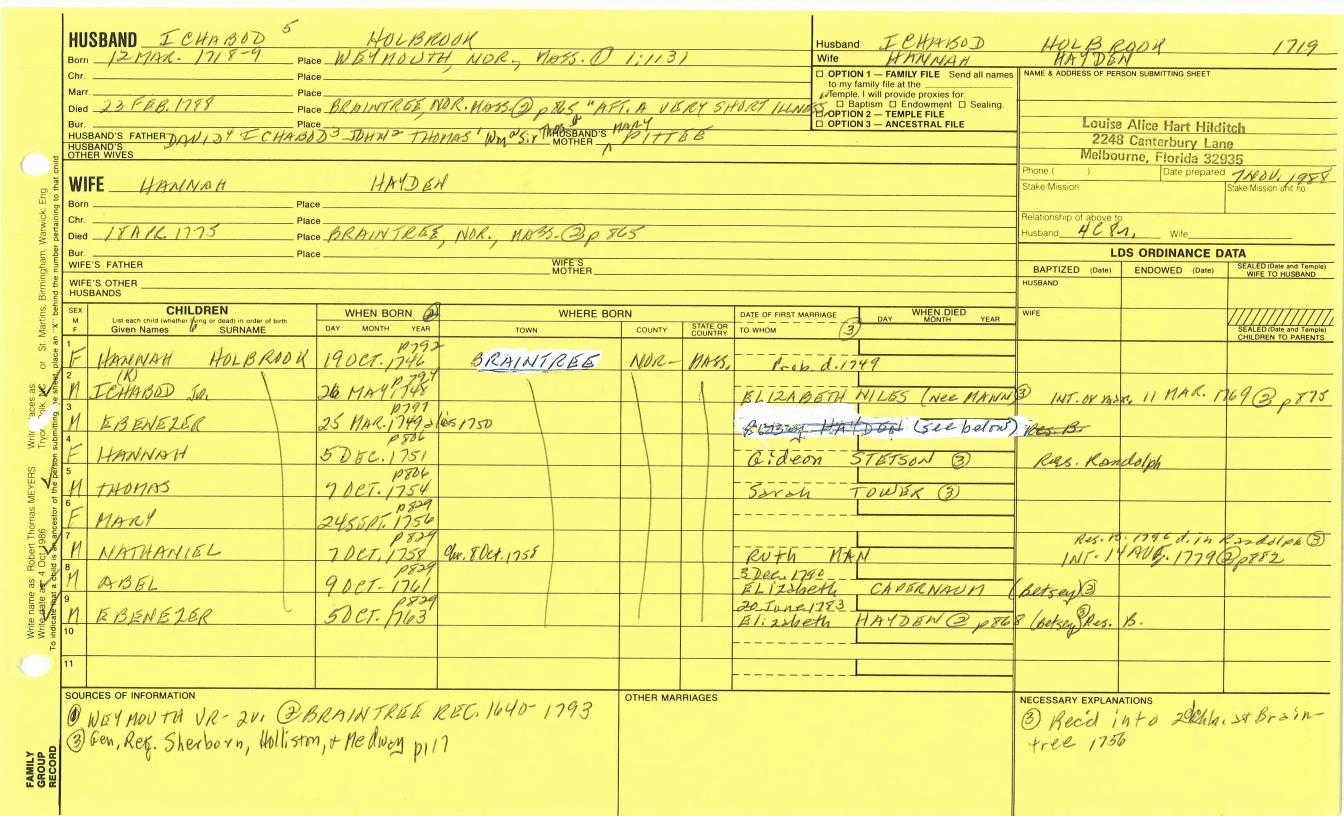 HUSBAND ICHABOD 5 HOLBROOK
Born 12 MAR. 1718-9 Place WEYMOUTH, NOR., MASS. ① 1:1131
Chr. Place
Marr. Place
Died 23 FEB. 1788 Place BRAINTREE, NOR. MASS. ② p865 "AFT. A VERY SHORT ILLNESS
Bur. Place
HUSBAND'S FATHER DAVID 4 ICHABOD 3 JOHN 2 THOMAS 1 HUSBAND'S MOTHER MARY PITTEE
HUSBAND'S OTHER WIVES
WIFE HANNAH HAYDEN
Born Place
Chr. Place
Died 18 APR. 1775 Place BRAINTREE, NOR., MASS. ② p 865
Bur. Place
WIFE'S FATHER WIFE'S MOTHER
WIFE'S OTHER HUSBANDS
Husband ICHABOD HOLBROOK 1719
Wife HANNAH HAYDEN
☐ OPTION 1 — FAMILY FILE Send all names
to my family file at the
Temple. I will provide proxies for
☐ Baptism ☐ Endowment ☐ Sealing.
☐ OPTION 2 — TEMPLE FILE
☐ OPTION 3 — ANCESTRAL FILE
NAME & ADDRESS OF PERSON SUBMITTING SHEET
Louise Alice Hart Hilditch
2248 Canterbury Lane
Melbourne, Florida 32935
Phone ( ) Date prepared 7 NOV. 1988
Stake/Mission Stake/Mission unit no.
Relationship of above to
Husband 4C 8r, Wife
LDS ORDINANCE DATA
BAPTIZED (Date) ENDOWED (Date) SEALED (Date and Temple) WIFE TO HUSBAND
HUSBAND
WIFE
SEALED (Date and Temple) CHILDREN TO PARENTS
SEX M F
CHILDREN
List each child (whether living or dead) in order of birth
Given Names SURNAME
WHEN BORN ②
DAY MONTH YEAR
WHERE BORN
TOWN COUNTY STATE OR COUNTRY
DATE OF FIRST MARRIAGE
TO WHOM ③
WHEN DIED
DAY MONTH YEAR
1 p792
F HANNAH HOLBROOK 19 OCT. 1746 BRAINTREE NOR- MASS. Prob. d. 1749
2 (K) p794
M ICHABOD Jr. 26 MAY 1748 ELIZABETH NILES (nee MANN) ③ INT. 11 MAR. 1769 ② p875
3 p797
M EBENEZER 25 MAR. 1749 1750 HAYDEN (see below) Res. B.
4 p806
F HANNAH 5 DEC. 1751 Gideon STETSON ③ Res. Randolph
5 p806
M THOMAS 7 OCT. 1754 Sarah TOWER ③
6 p829
F MARY 24 SEPT. 1756
7 p829 Res. B. 1796 d. in Randolph ③
M NATHANIEL 7 OCT. 1758 Chr. 8 Oct. 1758 RUTH MAN INT. 14 AUG. 1779 ② p882
8 p829 3 Dec. 1790
M ABEL 9 OCT. 1761 ELIZabeth CAPERNAUM (Betsey) ③
9 p829 20 June 1783
M EBENEZER 5 OCT. 1763 Elizabeth HAYDEN ② p868 (Betsey) ③ Res. B.
10
11
SOURCES OF INFORMATION
① WEYMOUTH VR- 2v. ② BRAINTREE REC. 1640- 1793
③ Gen. Reg. Sherborn, Holliston, + Medway p117
OTHER MARRIAGES
NECESSARY EXPLANATIONS
③ Rec'd into 2d Chh. at Brain-
tree 1756
FAMILY GROUP RECORD
Write name as: Robert Thomas MEYERS
Write date as: 4 Oct 1986